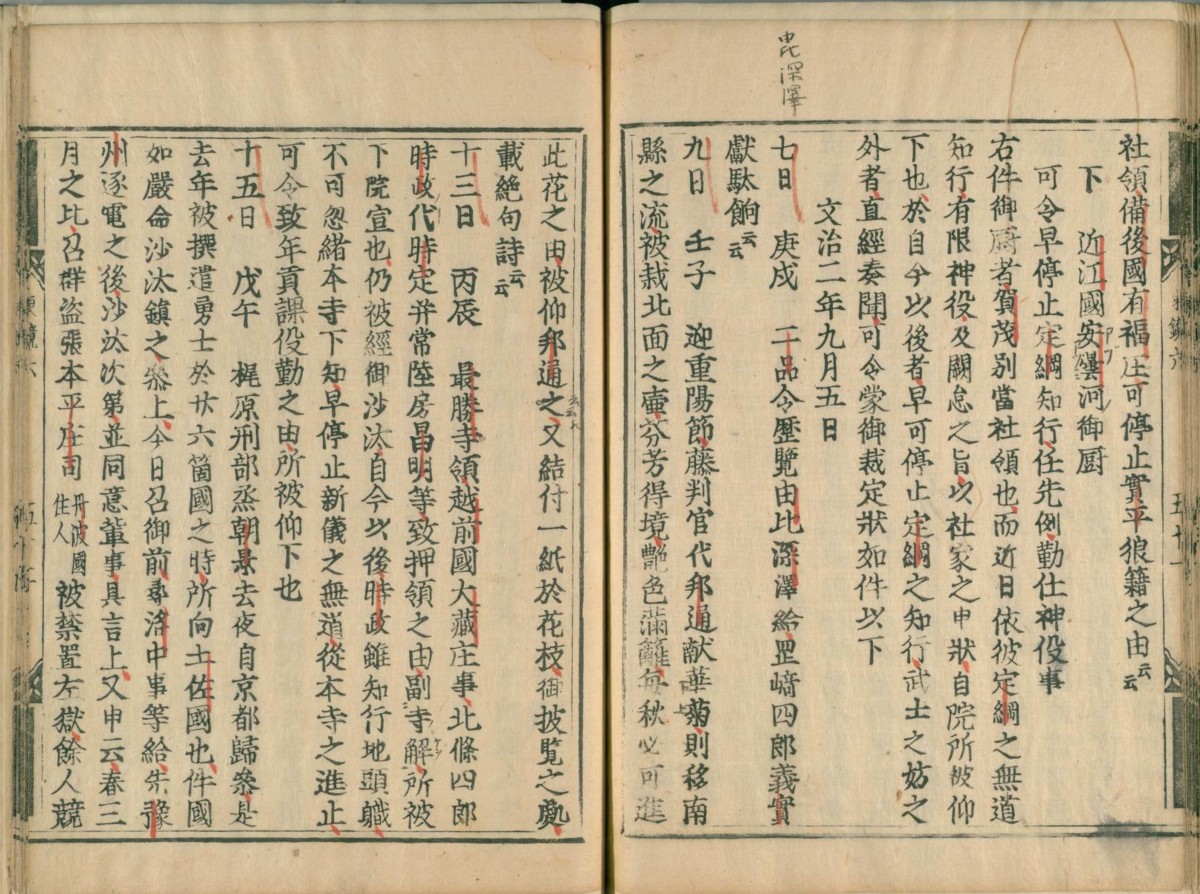 毘深澤
社領備後國有福庄可停止實平狼籍之由云云
下　近江國安曇河御厨
可令早停止定綱知行任先例勤仕神役事
右件御厨者賀茂別當社領也而近日依彼定綱之無道
知行有限神役及闕怠之旨以社家之申狀自院所被仰
下也於自今以後者早可停止定綱之知行武士之妨之
外者直經奏聞可令蒙御裁定狀如件以下
文治二年九月五日
七日　庚戌　二品令歷覽由比深澤給罡﨑四郎義實
獻駄餉云云
九日　壬子　迎重陽節藤判官代邦通献華菊則移南
縣之流被栽北面之壺芬芳得境艶色滿籬每秋必可進
此花之由被仰邦通之又結付一紙於花枝御披覽之處
載絶句詩云云
十三日　丙辰　最勝寺領越前國大藏庄事北條四郎
時政代時定并常陸房昌明等致押領之由副寺解所被
下院宣也仍被經御沙汰自今以後時政雖知行地頭職
不可忽緒本寺下知早停止新儀之無道從本寺之進止
可令致年貢課役勤之由所被仰下也
十五日　戊午　梶原刑部丞朝景去夜自京都歸叅是
去年被撰遣勇士於廿六箇國之時所向土佐國也件國
如嚴命沙汰鎮之叅上今日召御前尋洛中事等給先豫
州逐電之後沙汰次第並同意輩事具言上又申云春三
月之比召群盗張本平庄司丹波國住人被禁置左獄餘人競